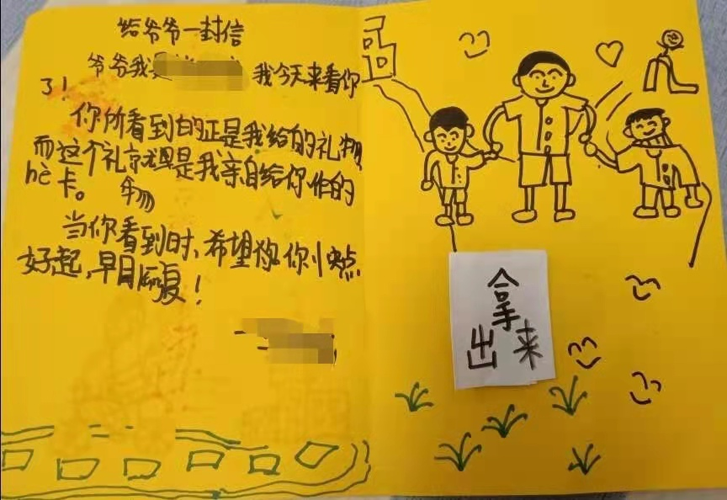 给爷爷一封信
爷爷我是 我今天来看你
了！
你所看到的正是我给的礼物
而这个礼京就是我亲自给你作的
hè卡。 物
当你看到时、希望你 快点
好起，早日 复！
拿
出来